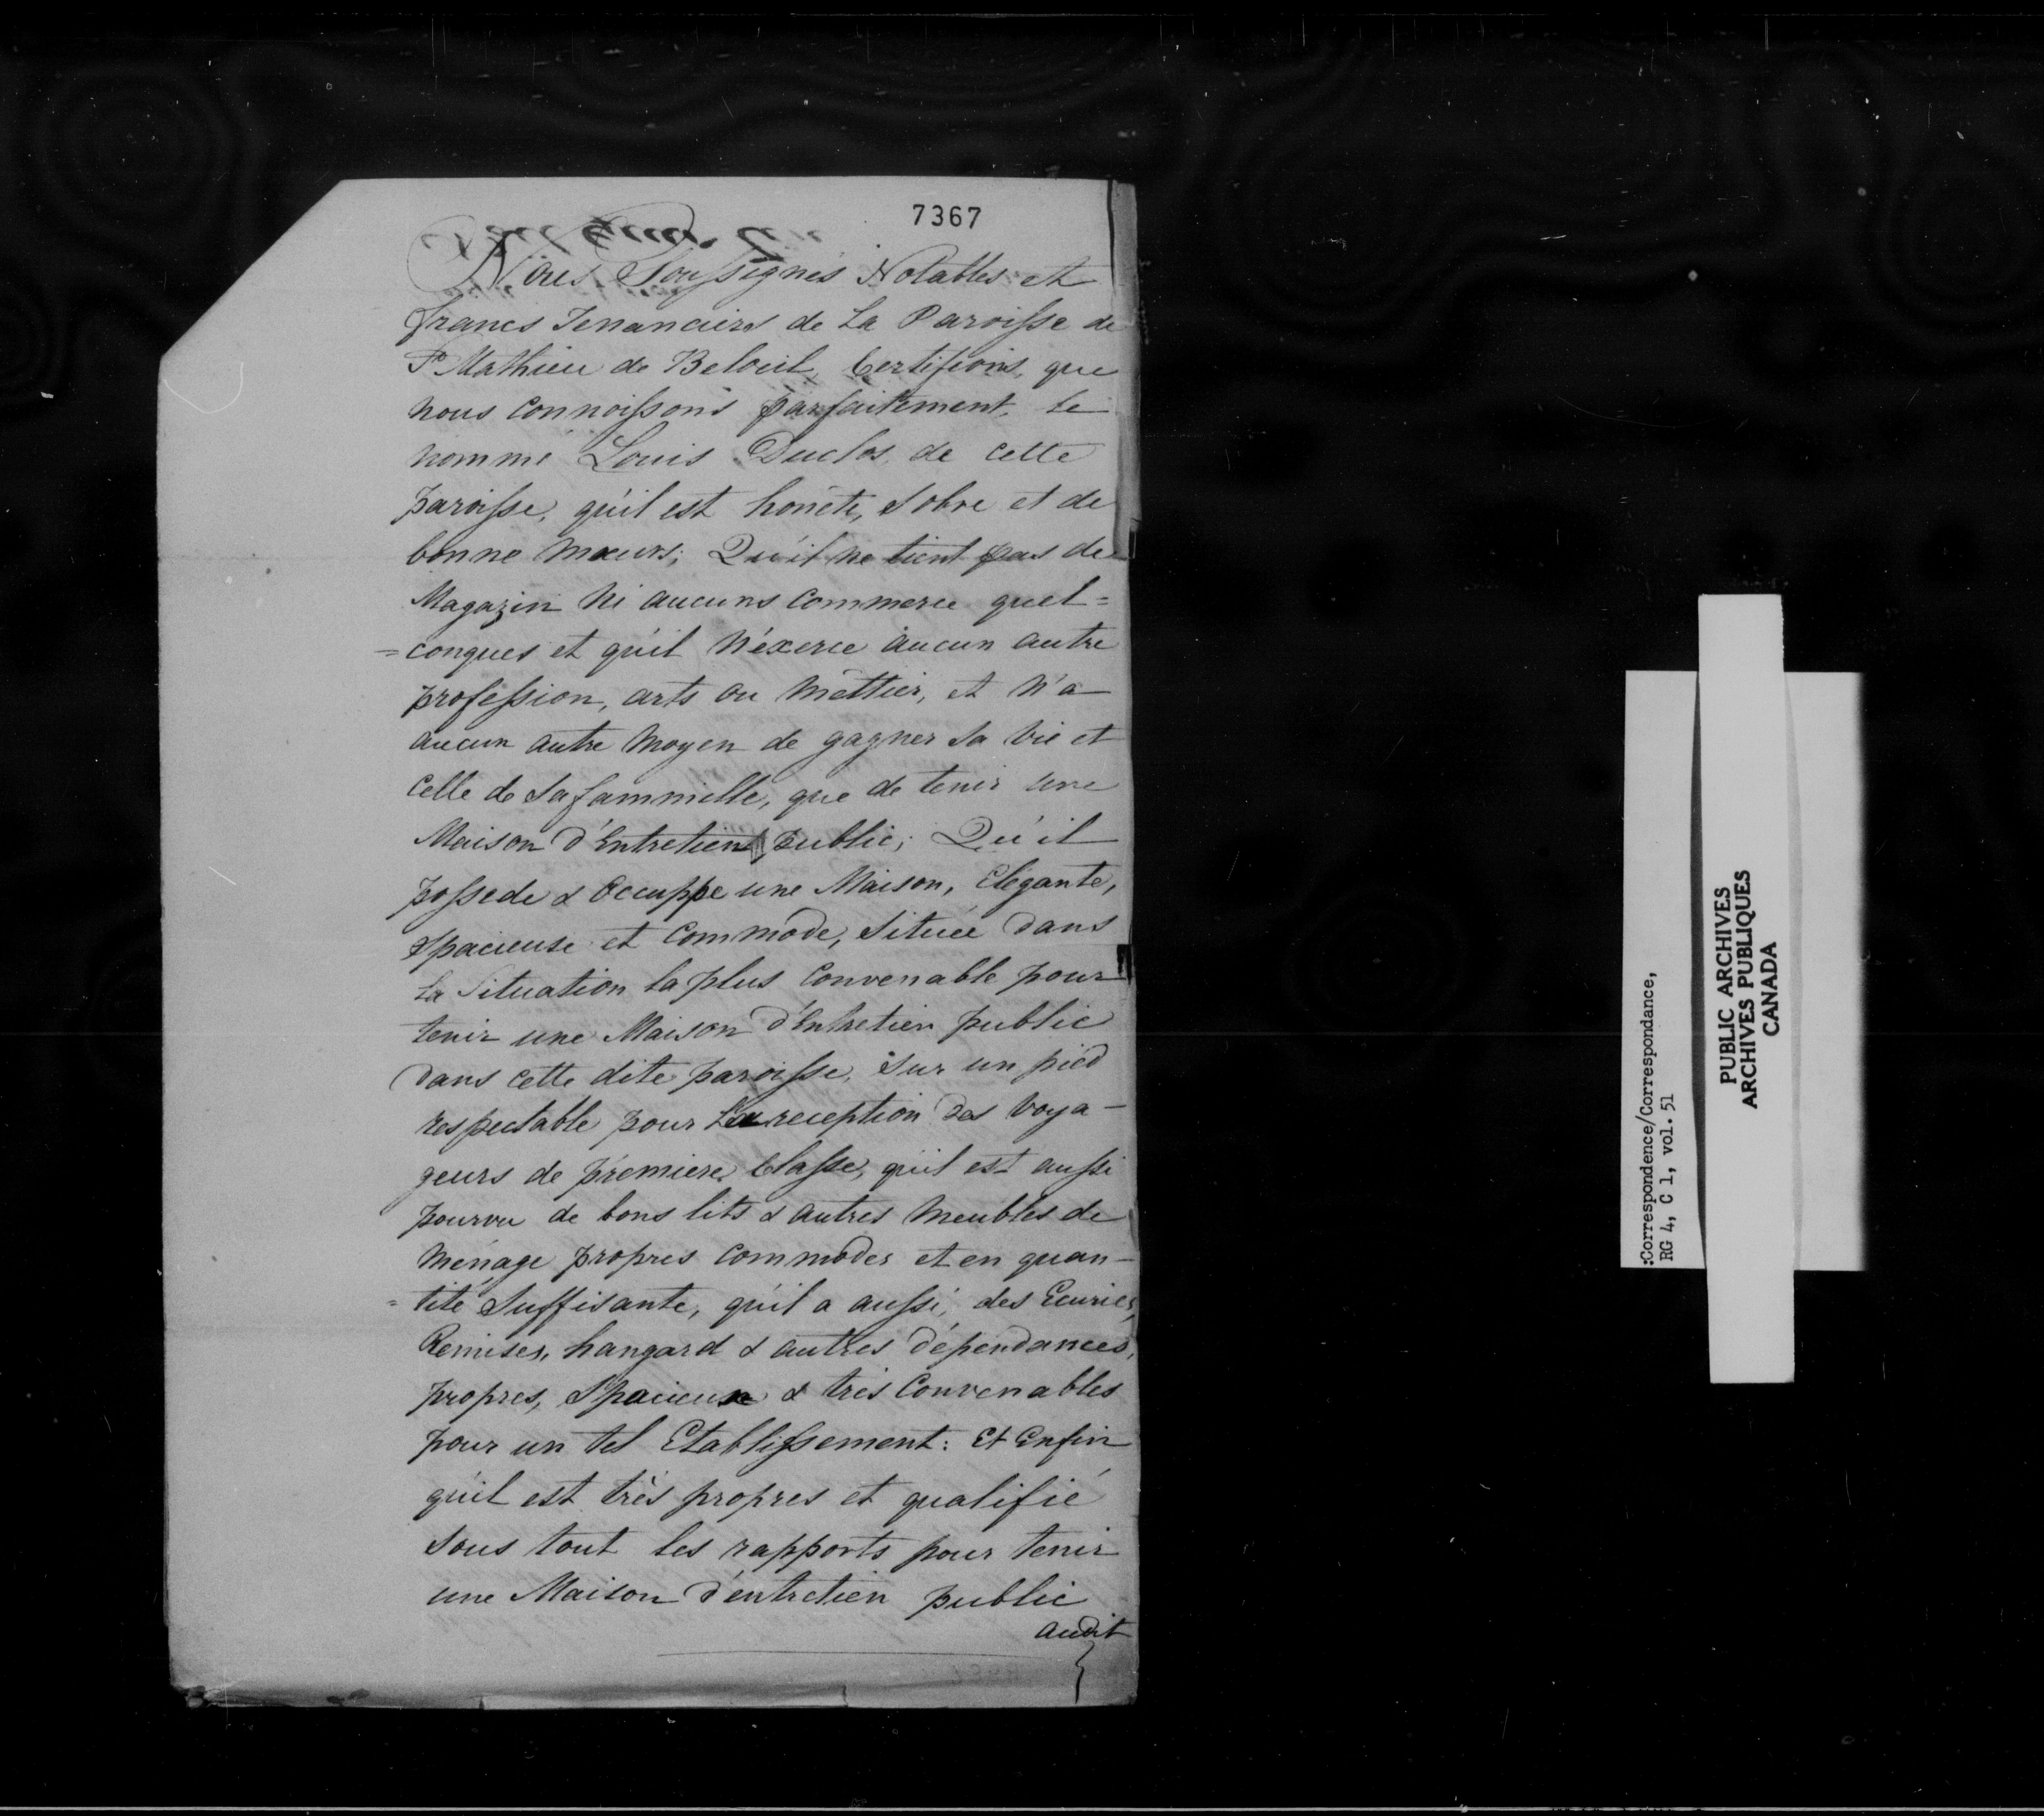 7367
Nous Soussignés Notables et
francs Tenanciers de La Paroisse de
St Mathieu de Belœil, Certifions, que
nous connoissons parfaitement, le
nommé Louis Duclos, de cette
paroisse, qu'il est honête, sobre et de
bonne mœurs; Qu'il ne tient pas de
Magazin ni aucuns commerce quel=
=conques et qu'il n'éxerce aucun autre
profession, arts ou mêttier, et n'a
aucun autre moyen de gagner sa vie et
celle de sa fammille, que de tenir une
Maison d'Entretien public; Qu'il
possede & Occuppe une Maison, Elégante,
spacieuse et commode, située dans
la Situation la plus Convenable pour
tenir une Maison d'Entretien public
dans cette dite paroisse, sur un pied
respectable pour La reception des voya-
geurs de premiere Classe, qu'il est aussi
pourvu de bons lits & autres meubles de
ménage propres commodes et en quan-
=tité suffisante, qu'il a aussi, des Ecuries,
Remises, hangard & autres dépendances,
propres, spacieuse & très Convenables
pour un tel Etablissement: Et Enfin
qu'il est très propres et qualifié
sous tout les rapports pour tenir
une Maison d'entretien public
audit
:Correspondence/Correspondance,
RG 4, C 1, vol. 51
PUBLIC ARCHIVES
ARCHIVES PUBLIQUES
CANADA